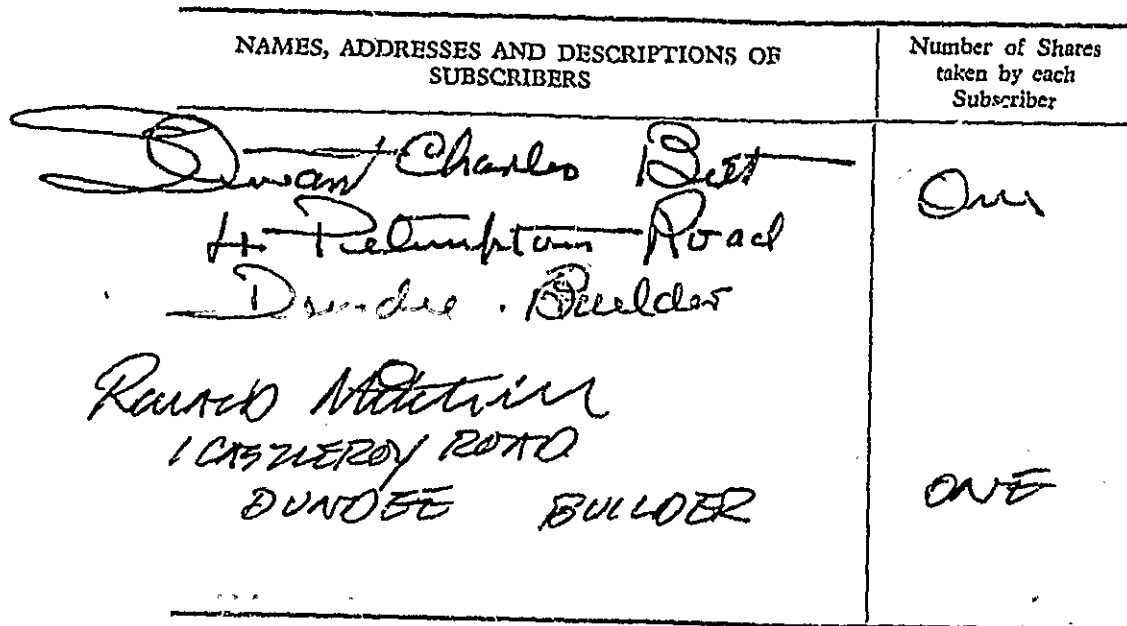 NAMES, ADDRESSES AND DESCRIPTIONS OF
SUBSCRIBERS
Number of Shares
taken by each
Subscriber
Charles
One
4 Road
Dundee . Builder
RONALD
1 CASTLEROY ROAD
DUNDEE BUILDER
ONE